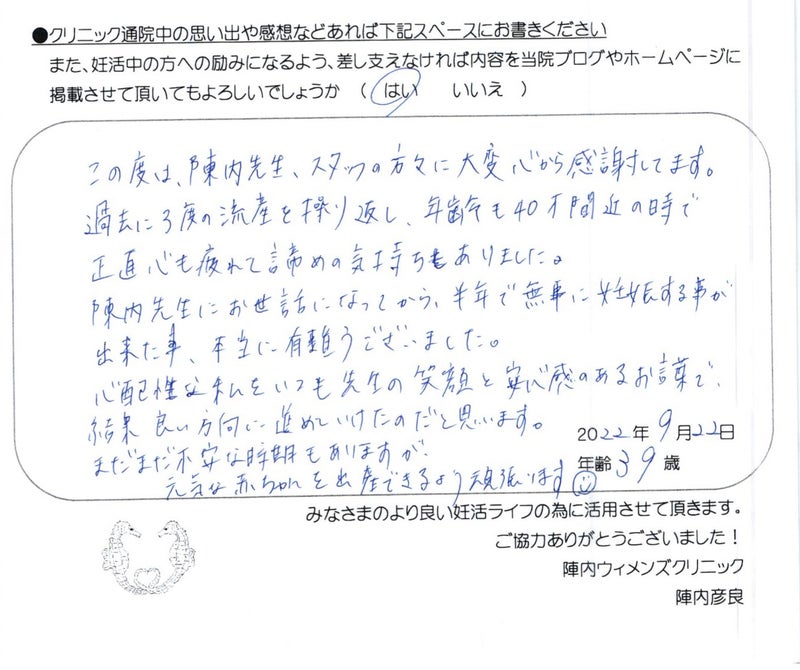 ●クリニック通院中の思い出や感想などあれば下記スペースにお書きください
また、妊活中の方への励みになるよう、差し支えなければ内容を当院ブログやホームページに
掲載させて頂いてもよろしいでしょうか （ はい いいえ ）
この度は、陳内先生、スタッフの方々に大変心から感謝してます。
過去に3度の流産を繰り返し、年齢も40才間近の時で
正直心も疲れて諦めの気持ちもありました。
陳内先生にお世話になってから、半年で無事に妊娠する事が
出来た事、本当に有難うございました。
心配性な私をいつも先生の笑顔と安心感のあるお言葉で、
結果良い方向に進めていけたのだと思います。
まだまだ不安な時期もありますが、
元気な赤ちゃんを出産できるよう頑張います☺
2022年9月22日
年齢39歳
みなさまのより良い妊活ライフの為に活用させて頂きます。
ご協力ありがとうございました！
陣内ウィメンズクリニック
陣内彦良